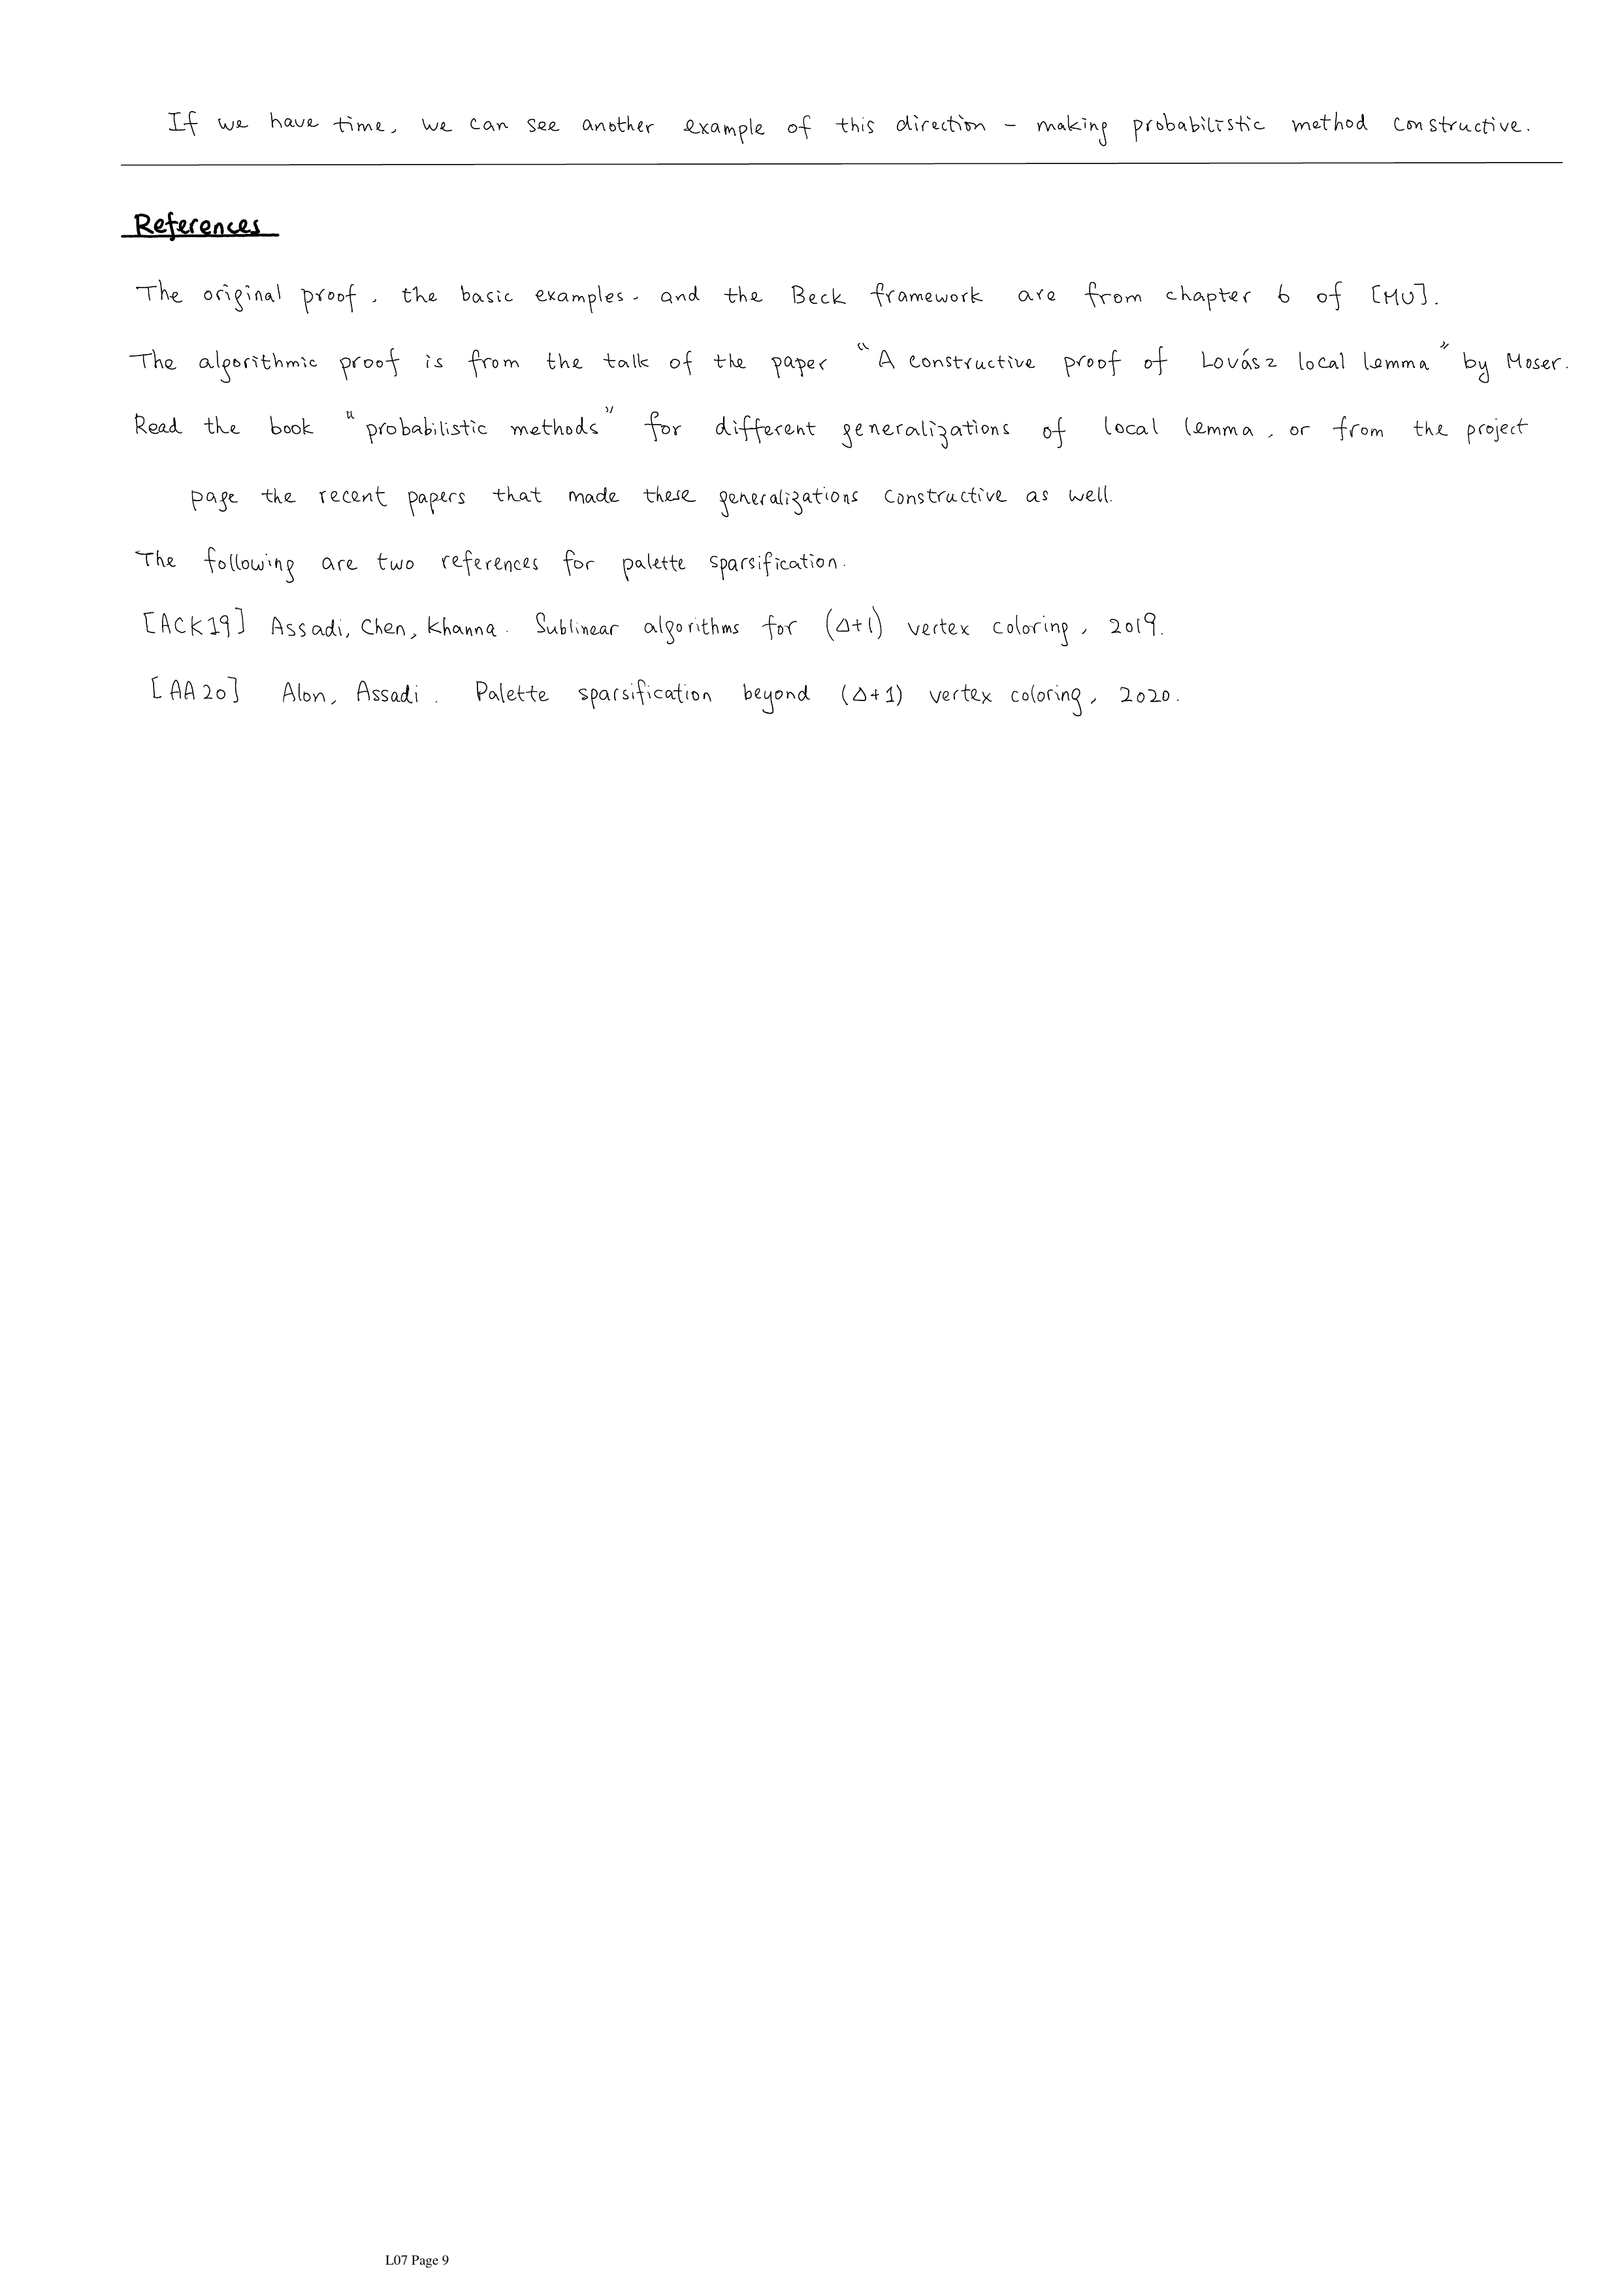 If we have time, we can see another example of this direction – making probabilistic method constructive.
References
The original proof, the basic examples, and the Beck framework are from chapter 6 of [MU].
The algorithmic proof is from the talk of the paper "A constructive proof of Lovász local lemma" by Moser.
Read the book "probabilistic methods" for different generalizations of local lemma, or from the project
page the recent papers that made these generalizations constructive as well.
The following are two references for palette sparsification.
[ACK19] Assadi, Chen, Khanna. Sublinear algorithms for (Δ+1) vertex coloring, 2019.
[AA20] Alon, Assadi. Palette sparsification beyond (Δ+1) vertex coloring, 2020.
L07 Page 9